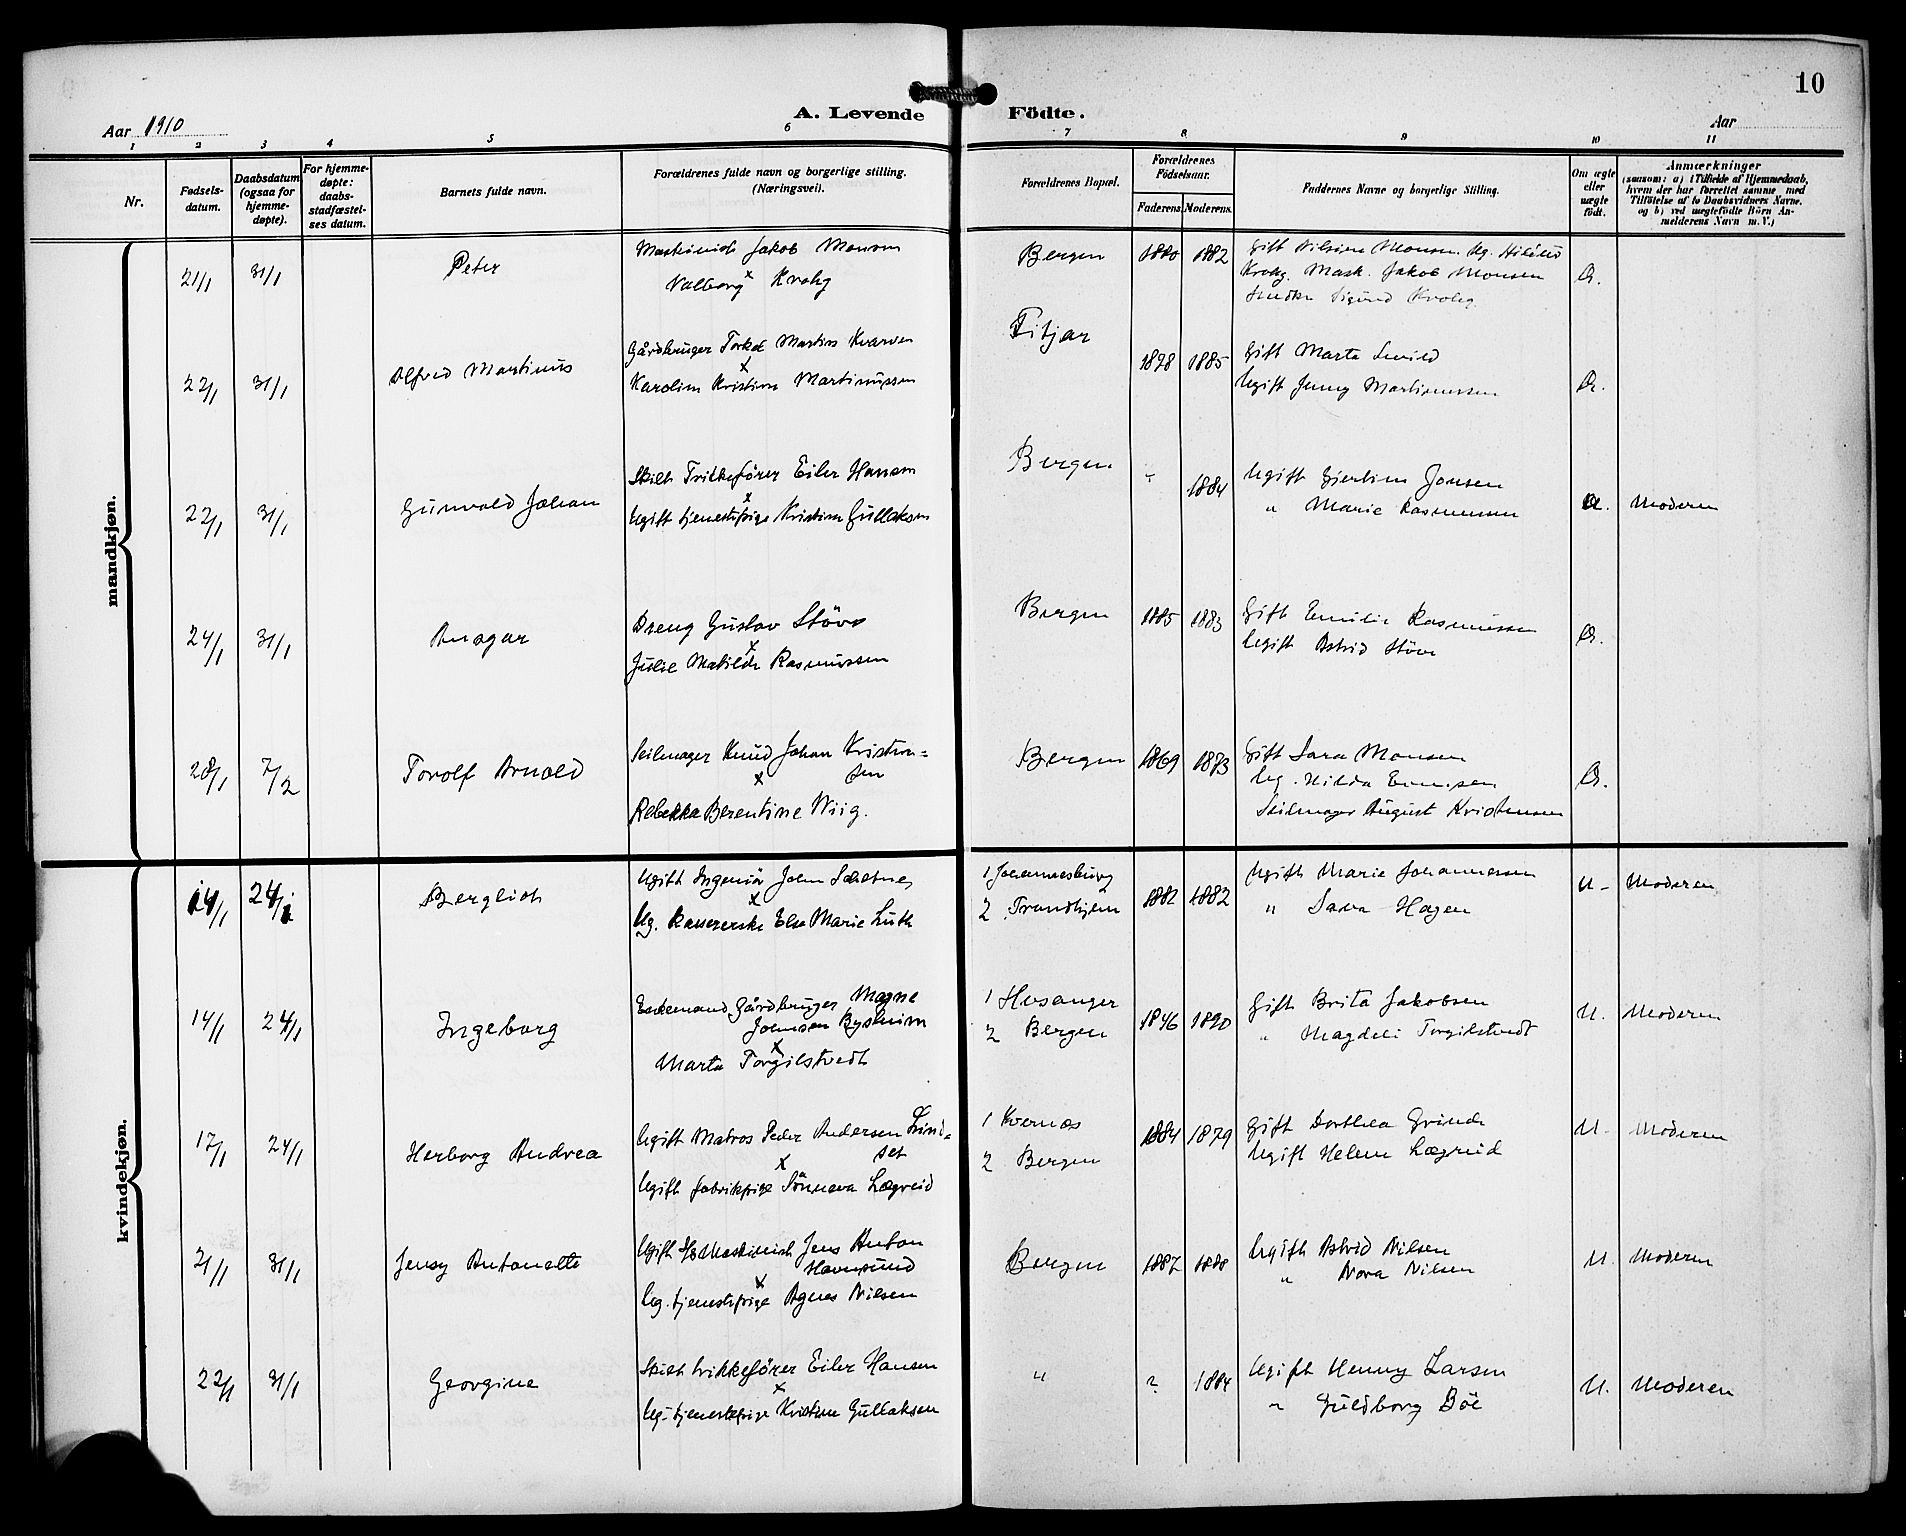 Aar 1910
A. Levende Födte.
Aar
10
1 2 3 4 5 6 7 8 9 10 11
Nr.
Fødsels-
datum.
Daabsdatum
(ogsaa for
hjemme-
døpte).
For hjemme-
døpte:
daabs-
stadfæstel-
ses datum.
Barnets fulde navn.
Forældrenes fulde navn og borgerlige stilling.
(Næringsvei).
Forældrenes Bopæl.
Forældrenes
Födselsaar.
Faderens. Moderens.
Faddernes Navne og borgerlige Stilling.
Om ægte
eller
uægte
født.
Anmærkninger
(saasom: a) i Tilfælde af Hjemmedaab,
hvem der har forrettet samme med
Tilføielse af to Daabsvidners Navne.
og b) ved uægtefödte Börn An-
melderens Navn m. V.)
mandkjøn.
21/1 31/1 Peter
Maskinist Jakob Monsen
x
Valborg Krohg
Bergen 1880 1882
Gift Nilsine Monsen
Krohg. Mask. Jakob Monsen
Sigurd Krohg
22/1 31/1 Alfred Martinus
Gårdbruger Torkel Martin Kvarven
x
Karoline Kristine Martinussen
Fitjar 1878 1885
Gift Marta
Ugift Jenny Martinussen
22/1 31/1 Gunvald Johan
Skilt Trikkefører Eiler Hansen
x
Ugift tjenestepige Kristine Gullaksen
Bergen 1884
Ugift Gjertine Jonsen
" Marie Rasmussen
Moderen
24/1 31/1 Ansgar
Dreng Gustav Støve
x
Julie Matilde Rasmussen
Bergen 1885 1883
Gift Emilie Rasmussen
Ugift Astrid Støve
28/1 7/2 Torolf Arnold
Seilmager Knud Johan Kristen=
x sen
Rebekka Berentine Wiig.
Bergen 1869 1873
Gift Sara Monsen
Ug. Hilda
Seilmager August Kristensen
kvindekjøn.
14/1 24/1 Bergliot
Ugift Ingeniør John
x
Ug. Kassererske Else Marie Luth
1 Johannesburg
2 Trondhjem
1882 1882
Ugift Marie Johannessen
" Sara Hagen
U. Moderen
14/1 24/1 Ingeborg
Enkemand Gårdbruger Magne
Johnsen Bysheim
x
Marta Torgilstvedt
1 Hosanger
2 Bergen
1846 1890
Gift Brita Jakobsen
" Magdeli Torgilstvedt
U. Moderen
17/1 24/1 Herborg Andrea
Ugift Matros Peder Andersen Lind=
x set
Ugift fabrikpige Sønneva Lægreid
1 Kvernæs
2 Bergen
1884 1879
Gift Dorthea Grinde
Ugift Helene Lægreid
U. Moderen
21/1 31/1 Jensy Antonette
Ugift Maskinist Jens Anton
Havnsund
x
Ug. tjenestepige Agnes Nilsen
Bergen 1887 1888
Ugift Astrid Nilsen
" Nora Nilsen
U. Moderen
22/1 31/1 Georgine
Skilt trikkefører Eiler Hansen
x
Ug. tjenestepige Kristine Gullaksen
" ? 1884
Ugift Henny Larsen
" Guldborg Böe
U. Moderen